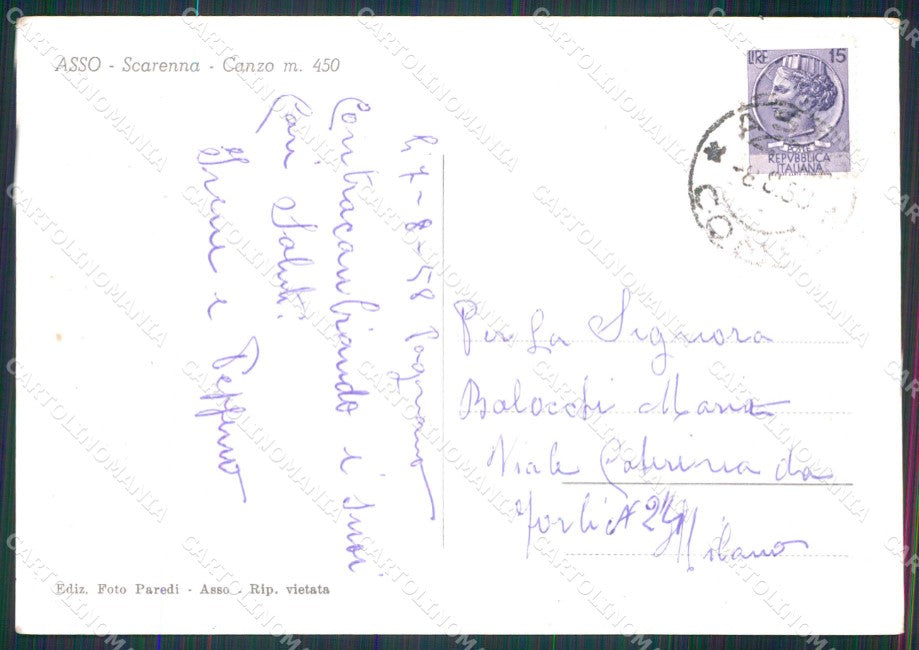 ASSO - Scarenna - Canzo m. 450
LIRE 15
POSTE
REPVBBLICA
ITALIANA
li 7-8-58 Pognana
Contracambiando i suoi
Cari Saluti.
Irene e Peppino
Per La Signora
Balocchi Maria
Viale Caterina da
Forlì N 24
Milano
Ediz. Foto Paredi - Asso - Rip. vietata
CARTOLINOMANIA